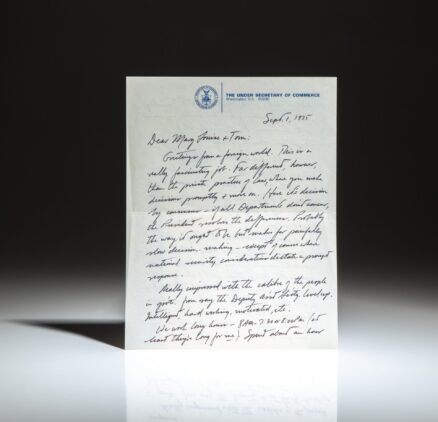 THE UNDER SECRETARY OF COMMERCE
Washington, D.C. 20230
Sept. 1, 1975
Dear Mary Louise & Tom:
Greetings from a foreign world. This is a
really fascinating job. Far different, however,
than the private practice of law, where you make
decisions promptly & move on. Here it's decision
by consensus – if all Departments don't concur,
the President resolves the differences. Probably
the way it ought to be but makes for painfully
slow decision-making – except of course where
national security considerations dictate a prompt
response.
Really impressed with the calibre of the people
in govt. from say the Deputy Asst. Secty. level up.
Intelligent, hard working, motivated, etc.
We work long hours – 8 AM - 7:30 or 8:00 PM (at
least they're long for me). Spend about an hour